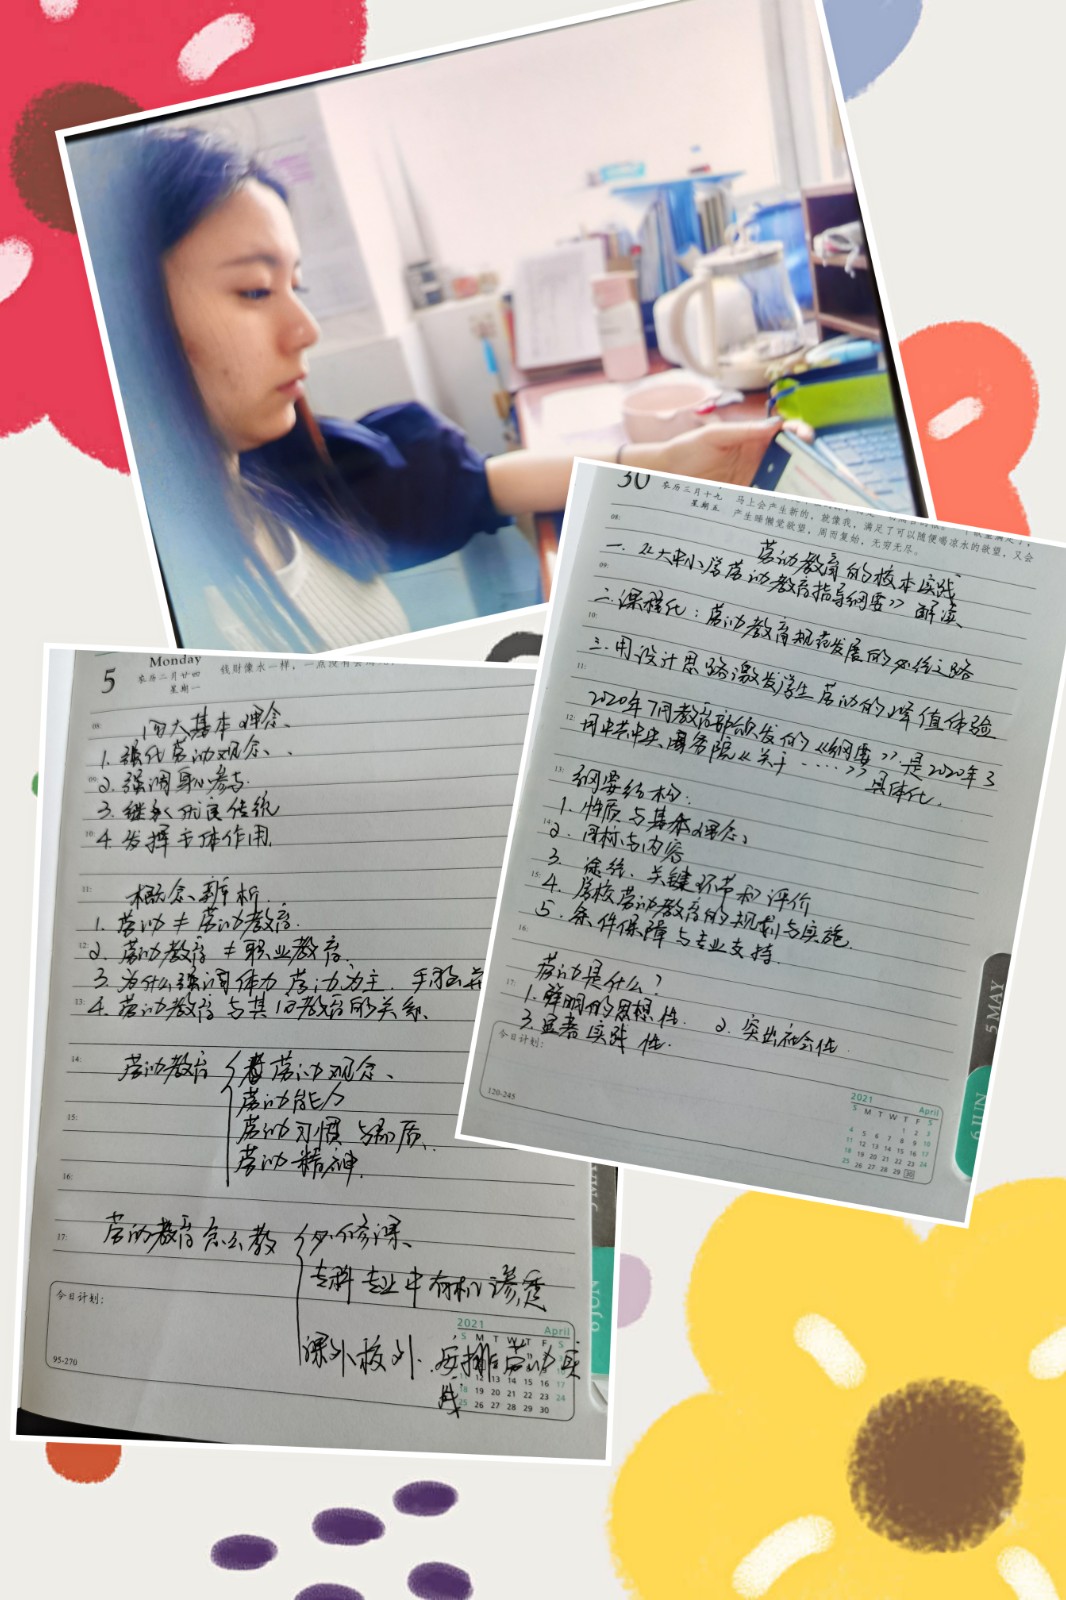 30
农历三月十九
星期五
马上会产生新的，就像我，满足了可以随便喝凉水的欲望，又会
产生睡懒觉欲望，周而复始，无穷无尽。
08:
劳动教育的校本实践
一.《大中小学劳动教育指导纲要》解读
09:
二.课程化：劳动教育规范发展的必经之路
10:
三.用设计思路激发学生劳动的峰值体验
11:
2020年7月教育部颁发的《纲要》是2020年3
12:
月中共中央国务院《关于……》具体化.
13:
纲要结构：
1. 性质与基本理念
14:
2. 目标与内容
3. 途径、关键环节和评价
15:
4. 学校劳动教育的规划与实施.
5. 条件保障与专业支持.
16:
劳动是什么？
17:
1. 鲜明的思想性. 2. 突出社会性.
3. 显著实践性.
今日计划：
120-245
2021 April
S M T W T F S
1 2 3
4 5 6 7 8 9 10
11 12 13 14 15 16 17
18 19 20 21 22 23 24
25 26 27 28 29 30
5 MAY
6 JUN
5
Monday
农历二月廿四
星期一
钱财像水一样，一点没有会
08:
四大基本理念、
1. 强化劳动观念、
09:
2. 强调身心参与.
3. 继承优良传统
10:
4. 发挥主体作用.
11:
概念辨析.
1. 劳动≠劳动教育.
12:
2. 劳动教育≠职业教育.
3. 为什么强调体力劳动为主. 手脑并
13:
4. 劳动教育与其他教育的关系.
14:
劳动教育 劳动观念、
劳动能力
15:
劳动习惯与品质.
劳动精神.
16:
17:
劳动教育怎么教 必修课、
专科专业中有机渗透
课外校外.安排劳动实
践.
今日计划：
95-270
2021 April
S M T W T F S
12 13 14 15 16 17
18 19 20 21 22 23 24
25 26 27 28 29 30
6 JUN